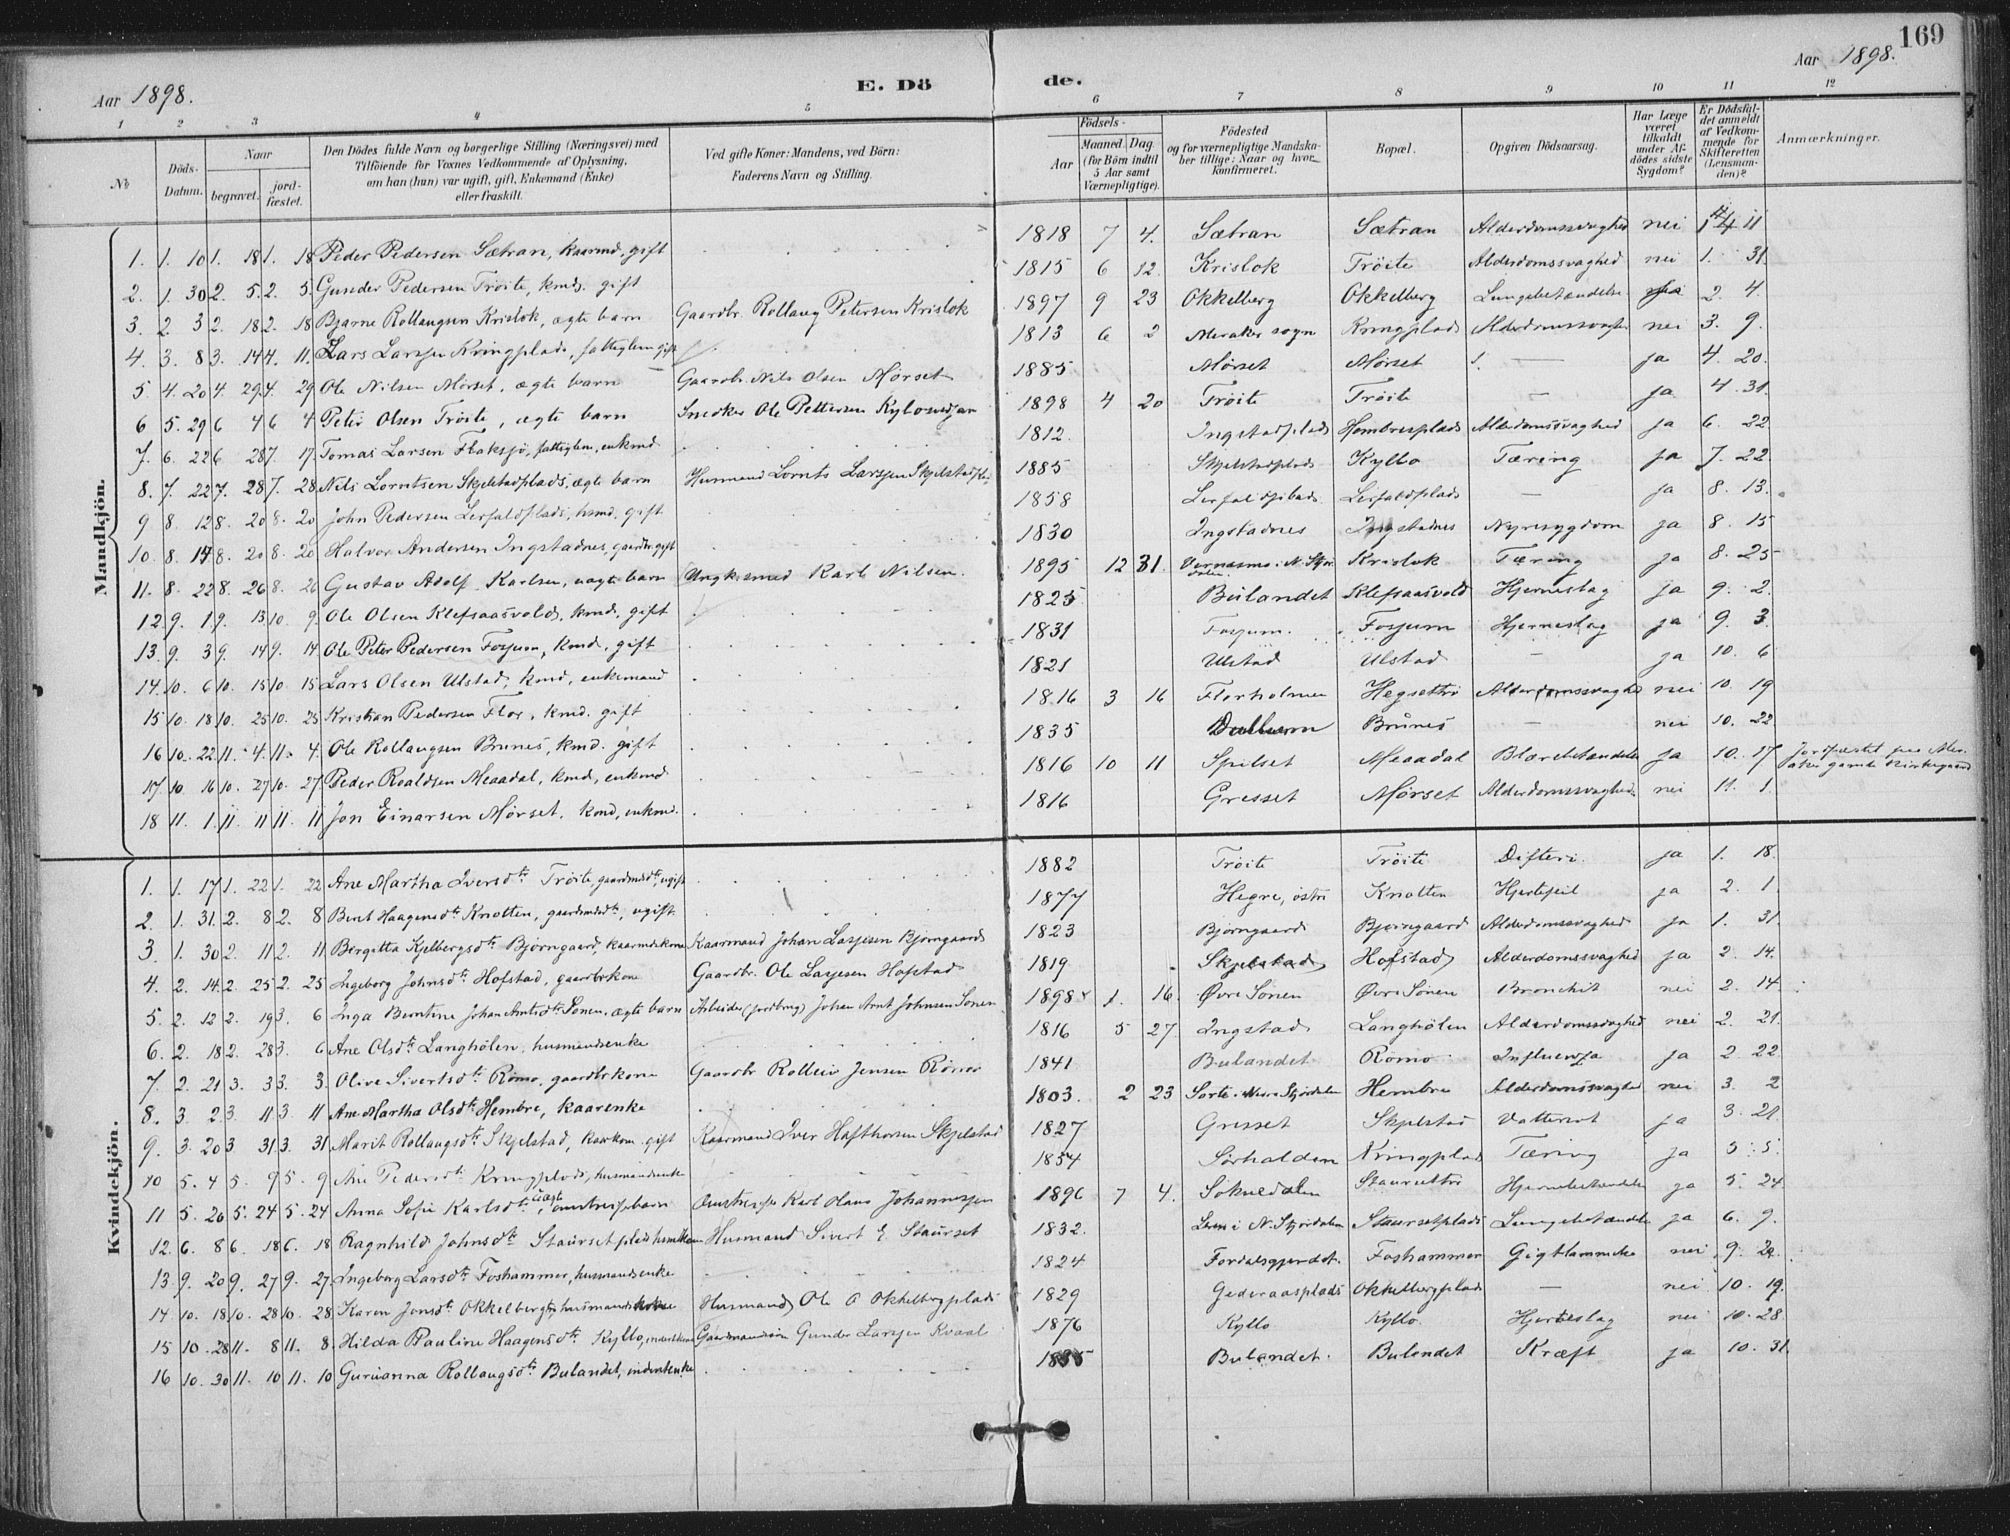 169
Aar 1898.
E. Döde.
Aar 1898.
1 2 3 4 5 6 7 8 9 10 11 12
No
Döds-Datum.
Naar
begravet.
jord-fæstet.
Den Dödes fulde Navn og borgerlige Stilling (Næringsvei) med
Tilföiende for Voxnes Vedkommende af Oplysning,
om han (hun) var ugift, gift, Enkemand (Enke)
eller fraskilt.
Ved gifte Koner: Mandens, ved Börn:
Faderens Navn og Stilling.
Födsels-
Aar
Maaned. Dag.
(for Börn indtil 5 Aar samt Værnepligtige).
Födested
og for værnepligtige Mandskaber tillige: Naar og hvor konfirmeret.
Bopæl.
Opgiven Dödsaarsag.
Har Læge været tilkaldt under Afdödes sidste Sygdom?
Er Dödsfaldet anmeldt af Vedkommende for Skifteretten (Lensmanden)?
Anmærkninger.
Mandkjön.
1. 1. 10 1. 18 1. 18 Peder Pedersen Sætran, kaarmd. gift 1818 7 4. Sætran Sætran Alderdomssvaghed nei 11
2. 1. 30 2. 5. 2. 5. Gunder Pedersen Tröite, kmd. gift 1815 6 12. Krislok Tröite Alderdomssvaghed nei 1. 31.
3. 2 3 2. 18 2. 18 Bjarne Rollaugsen Krislok, ægte barn Gaardbr. Rollaug Petersen Krislok 1897 9 23 Okkelberg Okkelberg Lungebetændelse 2. 4.
4. 3. 8 3. 14 4. 11. Lars Larssen Kringplads, fattiglem gift 1813 6 2 Meraker sogn Kringplads Alderdomssvaghed nei 3. 9.
5 4. 20 4. 29 4. 29 Ole Nilsen Mörset, ægte barn Gaardbr. Nils Olsen Mörset 1885 Mörset Mörset — ja 4. 20.
6 5. 29 6 4 6 4 Peter Olsen Tröite, ægte barn Snedker Ole Pettersen 1898 4 20 Tröite Tröite — ja 4. 31.
7. 6. 22 6. 28 7. 17. Tomas Larsen Flaksjö, fattiglem, enkmd 1812. Ingstadplads Hembreplads Alderdomssvaghed ja 6. 22
8. 7. 22 7. 28 7. 28 Nils Lorntsen Skjelstadplads, ægte barn Husmand Lornts Larssen Skjelstadpl. 1885 Skjelstadplads Kyllo Tæring ja 7. 22.
9 8. 12 8. 20 8. 20 John Pedersen Lerfaldplads, husmd. gift 1858 Lerfaldplads Lerfaldplads — ja 8. 13.
10. 8. 14 8. 20 8. 20 Halvor Andersen Ingstadnes, gaardbr. gift 1830 Ingstadnes Ingstadnes Nyresygdom ja 8. 15
11. 8. 22 8. 26 8. 26 Gustav Adolf Karlsen, uægte barn Ungkarsmed Karl Nilsen. 1895 12 31. Værnesmo i N. Stjørdalen Krislok Tæring ja 8. 25
12 9. 1 9. 13 10. 9. Ole Olsen Klefsaasvold, kmd. gift 1825 Bulandet Klefsaasvold Hjerneslag ja 9. 2.
13. 9. 3 9. 14 9. 14 Ole Peter Pedersen Forjum, kmd. gift 1831 Forjum. Forjum Hjerneslag ja 9. 3.
14. 10. 6 10. 15 10. 15 Lars Olsen Ulstad, kmd, enkemand 1821 Ulstad Ulstad — ja 10. 6
15 10. 18 10. 25 10. 25 Kristian Pedersen Flor, kmd. gift 1816 3 16 Florholmen Hegsettrö Alderdomssvaghed nei 10. 19
16 10. 22 11. 4. 11. 4. Ole Rollaugsen Brunes, kmd. gift 1835 Brünes — nei 10. 22
17. 10 16 10. 27 10. 27 Peder Roaldsen Meaadal, kmd, enkmd 1816 10 11 Spilset Meaadal Blærebetændelse ja 10. 17 Jordfæstet paa Meraker gamle Kirkegaard
18 11. 1. 11. 11 11. 11 Jon Einarsen Mörset. kmd, enkmd. 1816 Gresset Mörset Alderdomssvaghed. nei 11. 1.
Kvindekjön.
1. 1. 17 1. 22 1. 22 Ane Martha Iversdtr Tröite, gaardmdsdtr, ugift 1882 Tröite Tröite Difteri. ja 1. 18.
2. 1. 31. 2. 8 2. 8 Berit Haagensdtr Knotten, gaardmdsdtr, ugift 1877 Hegre, östre Knotten Hjertefeil ja 2. 1.
3. 1. 30 2. 11 2. 11 Birgitta Kjelbergsdtr Bjørngaard, kaarmdskone Kaarmand Johan Larsen Bjørngaard 1823 Bjørngaard Bjørngaard Alderdomssvaghed ja 1. 31
4. 2. 14. 2. 25 2. 25 Ingeborg Johnsdtr Hofstad, gaardbrkone Gaardbr. Ole Larsen Hofstad 1819 Skjelstad Hofstad Alderdomssvaghed ja 2. 14.
5. 2. 12 2. 19 3. 6 Inga Berntine Johan Arntsdtr Sonen, ægte barn Arbeider (jordbrug) Johan Arnt Johnsen Sonen 1898 1. 16. Øvre Sonen Øvre Sonen Bronchit nei 2. 14.
6. 2. 18 2. 28 3. 6 Ane Olsdtr Langhölen, husmandsenke 1816 5 27. Ingstad Langhölen Alderdomssvaghed nei 2. 21.
7. 2. 21 3. 3 3. 3. Olive Sivertsdtr Römo, gaardbrkone Gaardbr Rolleiv Jensen Römo 1841 Bulandet Römo Influenza ja 2 22.
8. 3. 2 3. 11 3. 11 Ane Martha Olsdtr Hembre, kaarenke 1803. 2 23 Sorte i Nedre Stjørdalen Hembre Alderdomssvaghed nei 3. 2
9. 3. 20 3 31 3. 31 Marit Rollaugsdtr Skjelstad, kaarkone, gift Kaarmand Iver Hafthorsen Skjelstad 1827 Gresset Skjelstad Vattersot ja 3. 21
10 5. 4 5. 9 5. 9 Ane Pedersdtr Kringplads, husmandsenke 1854 Sörhalden Kringplads Tæring ja 5. 5.
11 5. 26 5. 24 5. 24 Anna Sofie Karlsdtr, uægte omstreiferbarn Omstreifer Karl Hans Johannessen 1896 7 4. Soknedalen Hjernebetændelse ja 5. 24
12. 6. 8 6. 18 6. 18 Ragnhild Johnsdtr Staursetplads husmkone Husmand Sivert E Staurset 1832. Leren i N. Stjørdalen Staursetplads Lungebetændelse ja 6. 9.
13. 9. 20 9. 27 9. 27. Ingeborg Larsdtr Foshammer, husmandsenke 1824 Foshammer nei 9. 20.
14. 10. 18 10. 28 10. 28 Karen Jonsdtr Okkelbergpl, husmandskone Husmand Ole O Okkelbergplads 1829 Gederaasplads Okkelbergplads — nei 10. 19.
15 10. 28 11. 8 11. 8. Hilda Pauline Haagensdtr Kyllo, inderstkone Gaardmandssøn Gunder Larsen Kvaal 1876 Kyllo Kyllo. Hjerteslag nei 10. 28.
16 10. 30 11. 10 11. 10 Gurianna Rollaugsdtr Bulandet, inderstenke Bulandet. Bulandet Kræft ja 10. 31.